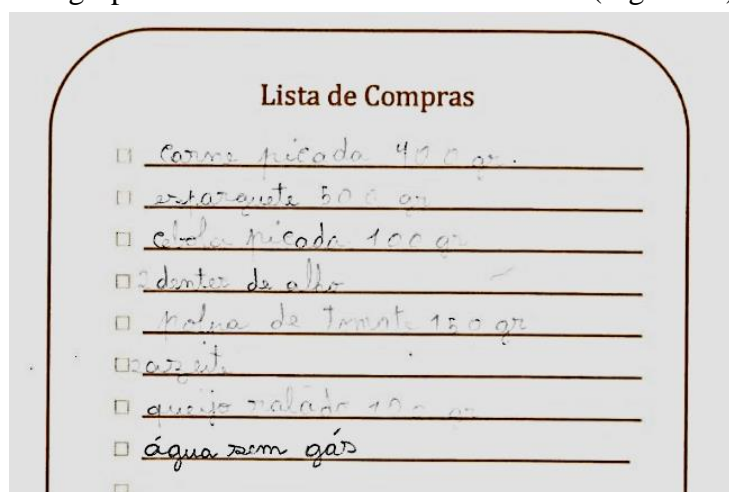 Lista de Compras
carne picada 400 gr.
esparguete 500 gr
cebola picada 100 gr
2 dentes de alho
polpa de tomate 150 gr
azeite
queijo ralado 100 gr
água sem gás